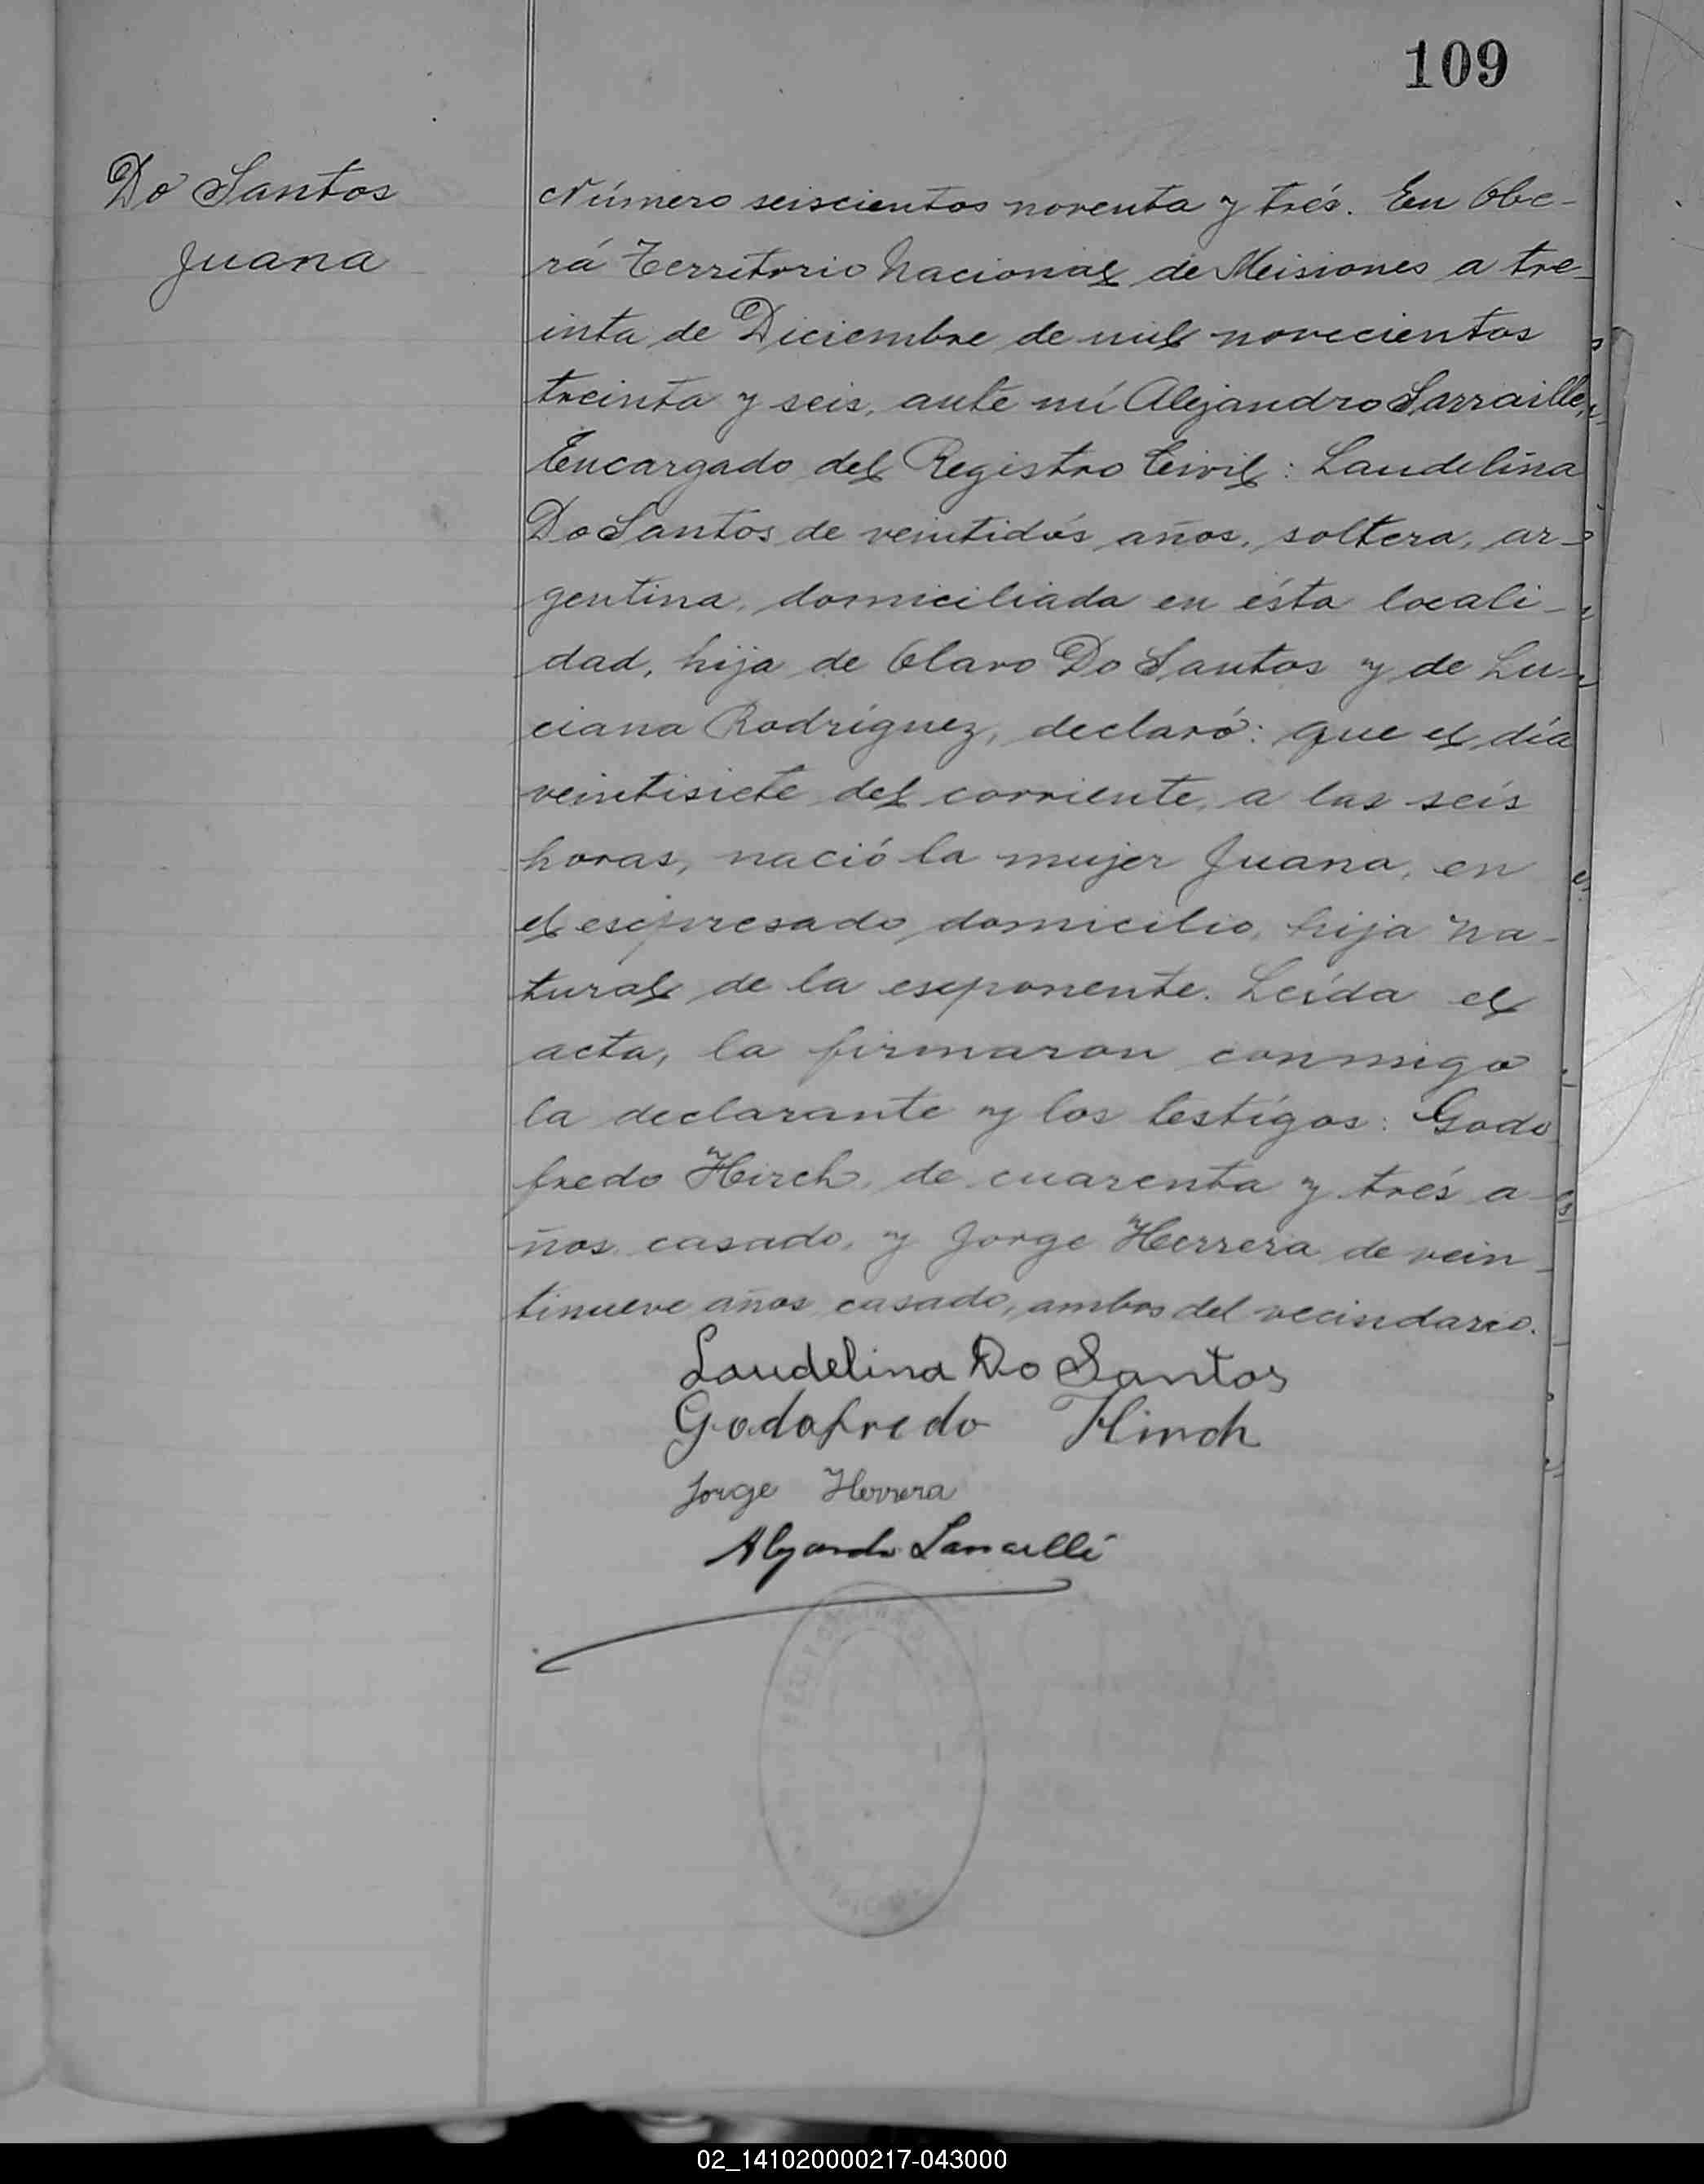 109
Do Santos
Juana
Número seiscientos noventa y trés. En Obe-
rá Territorio Nacional de Misiones a tre-
inta de Diciembre de mil novecientos
treinta y seis, ante mí Alejandro Sarraille,
Encargado del Registro Civil: Laudelina
Do Santos de veintidós años, soltera, ar-
gentina, domiciliada en ésta locali-
dad, hija de Olavo Do Santos y de Lu-
ciana Rodríguez, declaró: que el día
veintisiete del corriente, a las seis
horas, nació la mujer Juana, en
el expresado domicilio, hija na-
tural de la exponente. Leída el
acta, la firmaron conmigo
la declarante y los testigos: Godo
fredo Hirch, de cuarenta y trés a-
ños casado, y Jorge Herrera de vein-
tinueve años casado, ambos del vecindario.
Laudelina Do Santos
Godofredo Hirch
Jorge Herrera
02_141020000217-043000